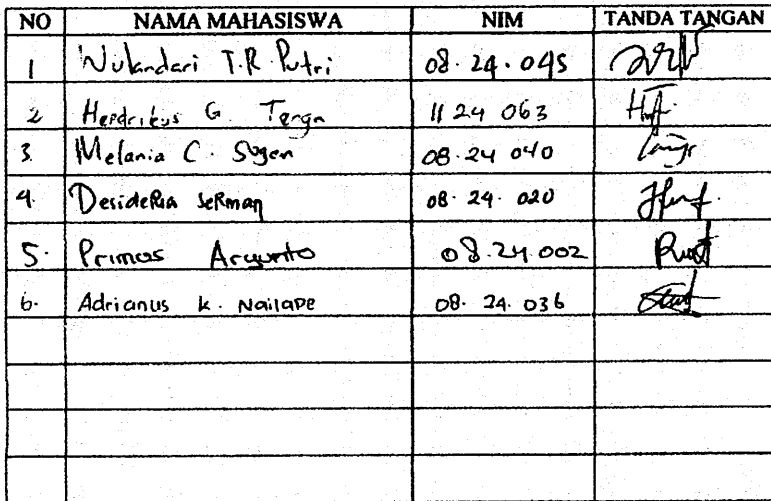 NO NAMA MAHASISWA NIM TANDA TANGAN
1 Wulandari T.R. Putri 08.24.045
2 Hendrikus G. 11 24 063
3. Melania C. Sugen 08.24 040
4. Desideria Serman 08.24.020
5. Primus 08.24.002
6. Adrianus K. Nailape 08.24.036